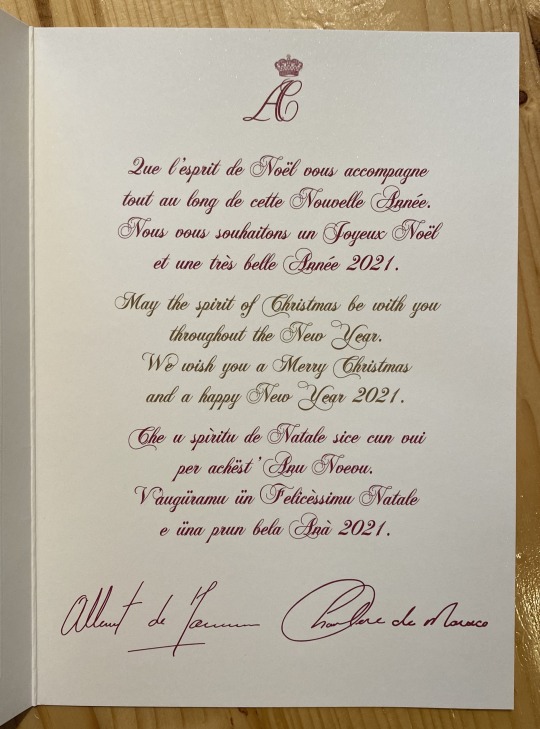 AC
Que l'esprit de Noël vous accompagne
tout au long de cette Nouvelle Année.
Nous vous souhaitons un Joyeux Noël
et une très belle Année 2021.
May the spirit of Christmas be with you
throughout the New Year.
We wish you a Merry Christmas
and a happy New Year 2021.
Che u spìritu de Natale sice cun vui
per achëst' Anu Noevu.
V'augüramu ün Felicèssimu Natale
e üna prun bela Anà 2021.
Albert de Monaco Charlene de Monaco